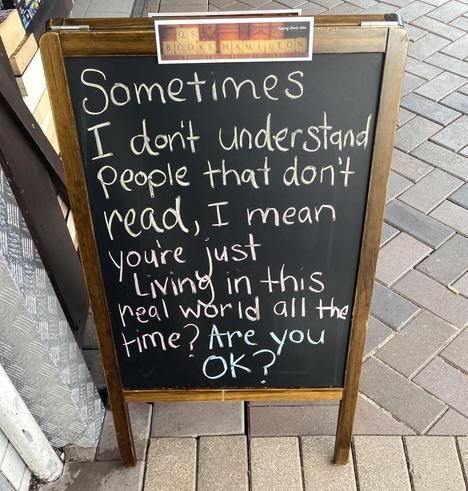 BOOKS HAMILTON
Sometimes
I don't understand
people that don't
read, I mean
you're just
Living in this
real world all the
time? Are you
OK?